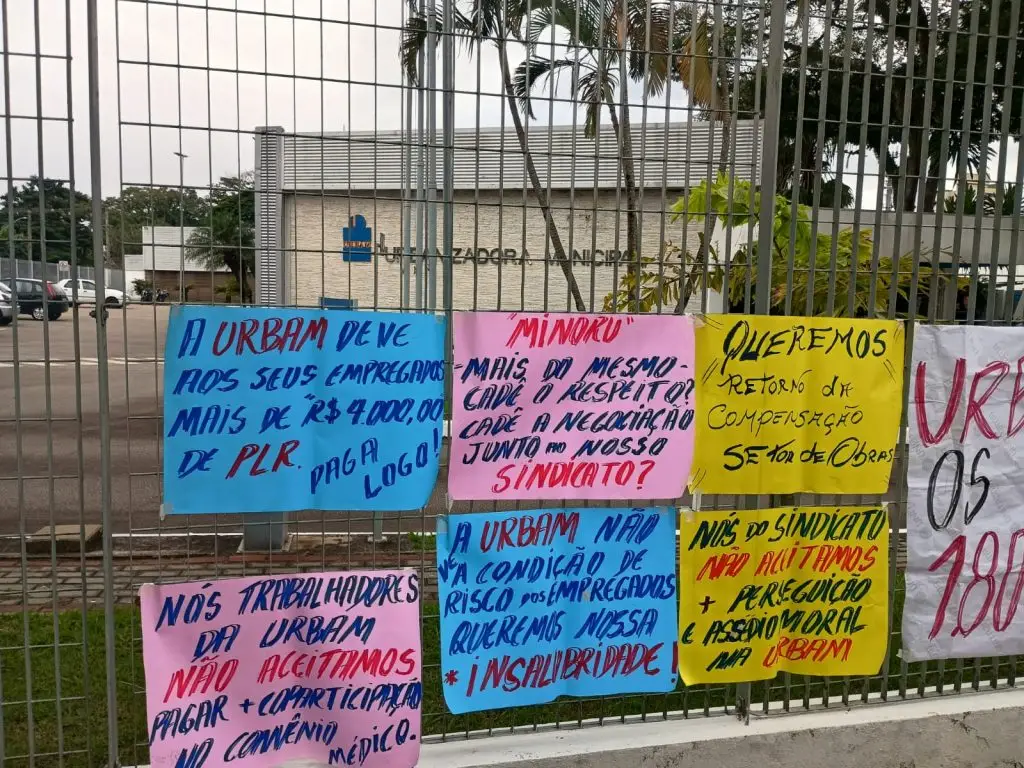 URBAM
URBANIZADORA MUNICIPAL
A URBAM DEVE
AOS SEUS EMPREGADOS
MAIS DE "R$ 4.000,00
DE PLR.
PAGA
LOGO!
"MINORU"
- MAIS DO MESMO -
CADÊ O RESPEITO?
CADÊ A NEGOCIAÇÃO
JUNTO AO NOSSO
SINDICATO?
"QUEREMOS"
RETORNO DA
COMPENSAÇÃO
SETOR DE OBRAS
URB
OS
180
NÓS TRABALHADORES
DA URBAM
NÃO ACEITAMOS
PAGAR + COPARTICIPAÇÃO
NO CONVÊNIO
MÉDICO.
A URBAM NÃO
VÊ A CONDIÇÃO DE
RISCO DOS EMPREGADOS
QUEREMOS NOSSA
* INSALIBRIDADE!
NÓS DO SINDICATO
NÃO ACEITAMOS
+ PERSEGUIÇÃO
E ASSÉDIO MORAL
NA URBAM